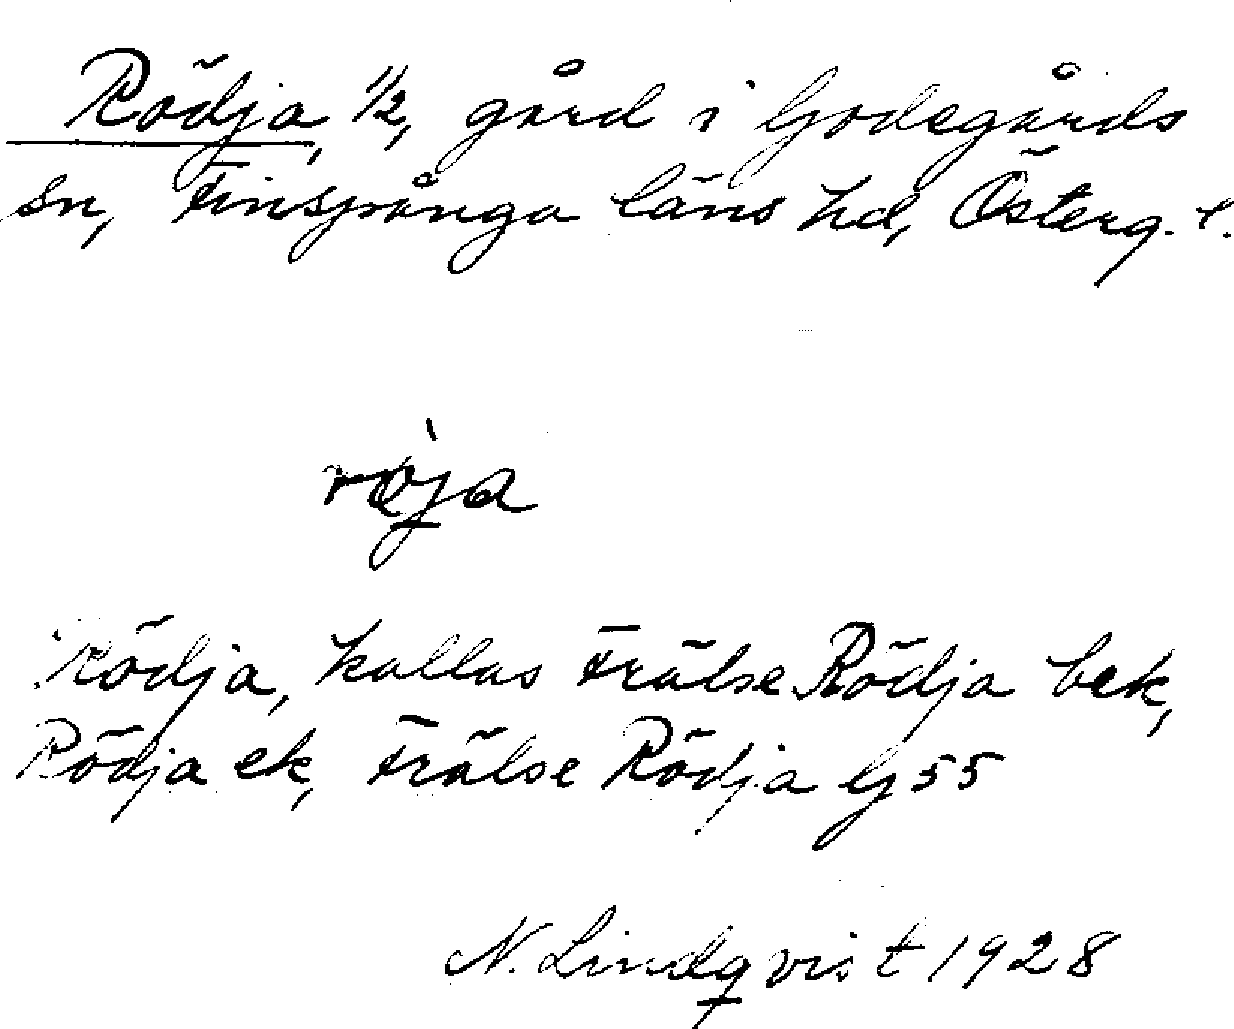 Rödja, 1/2, gård i Godegårds
sn, Finspånga läns hd, Österg. l.
röja
Rödja, kallas Frälse Rödja bek,
Rödja ek, Frälse Rödja G 55
N. Lindqvist 1928